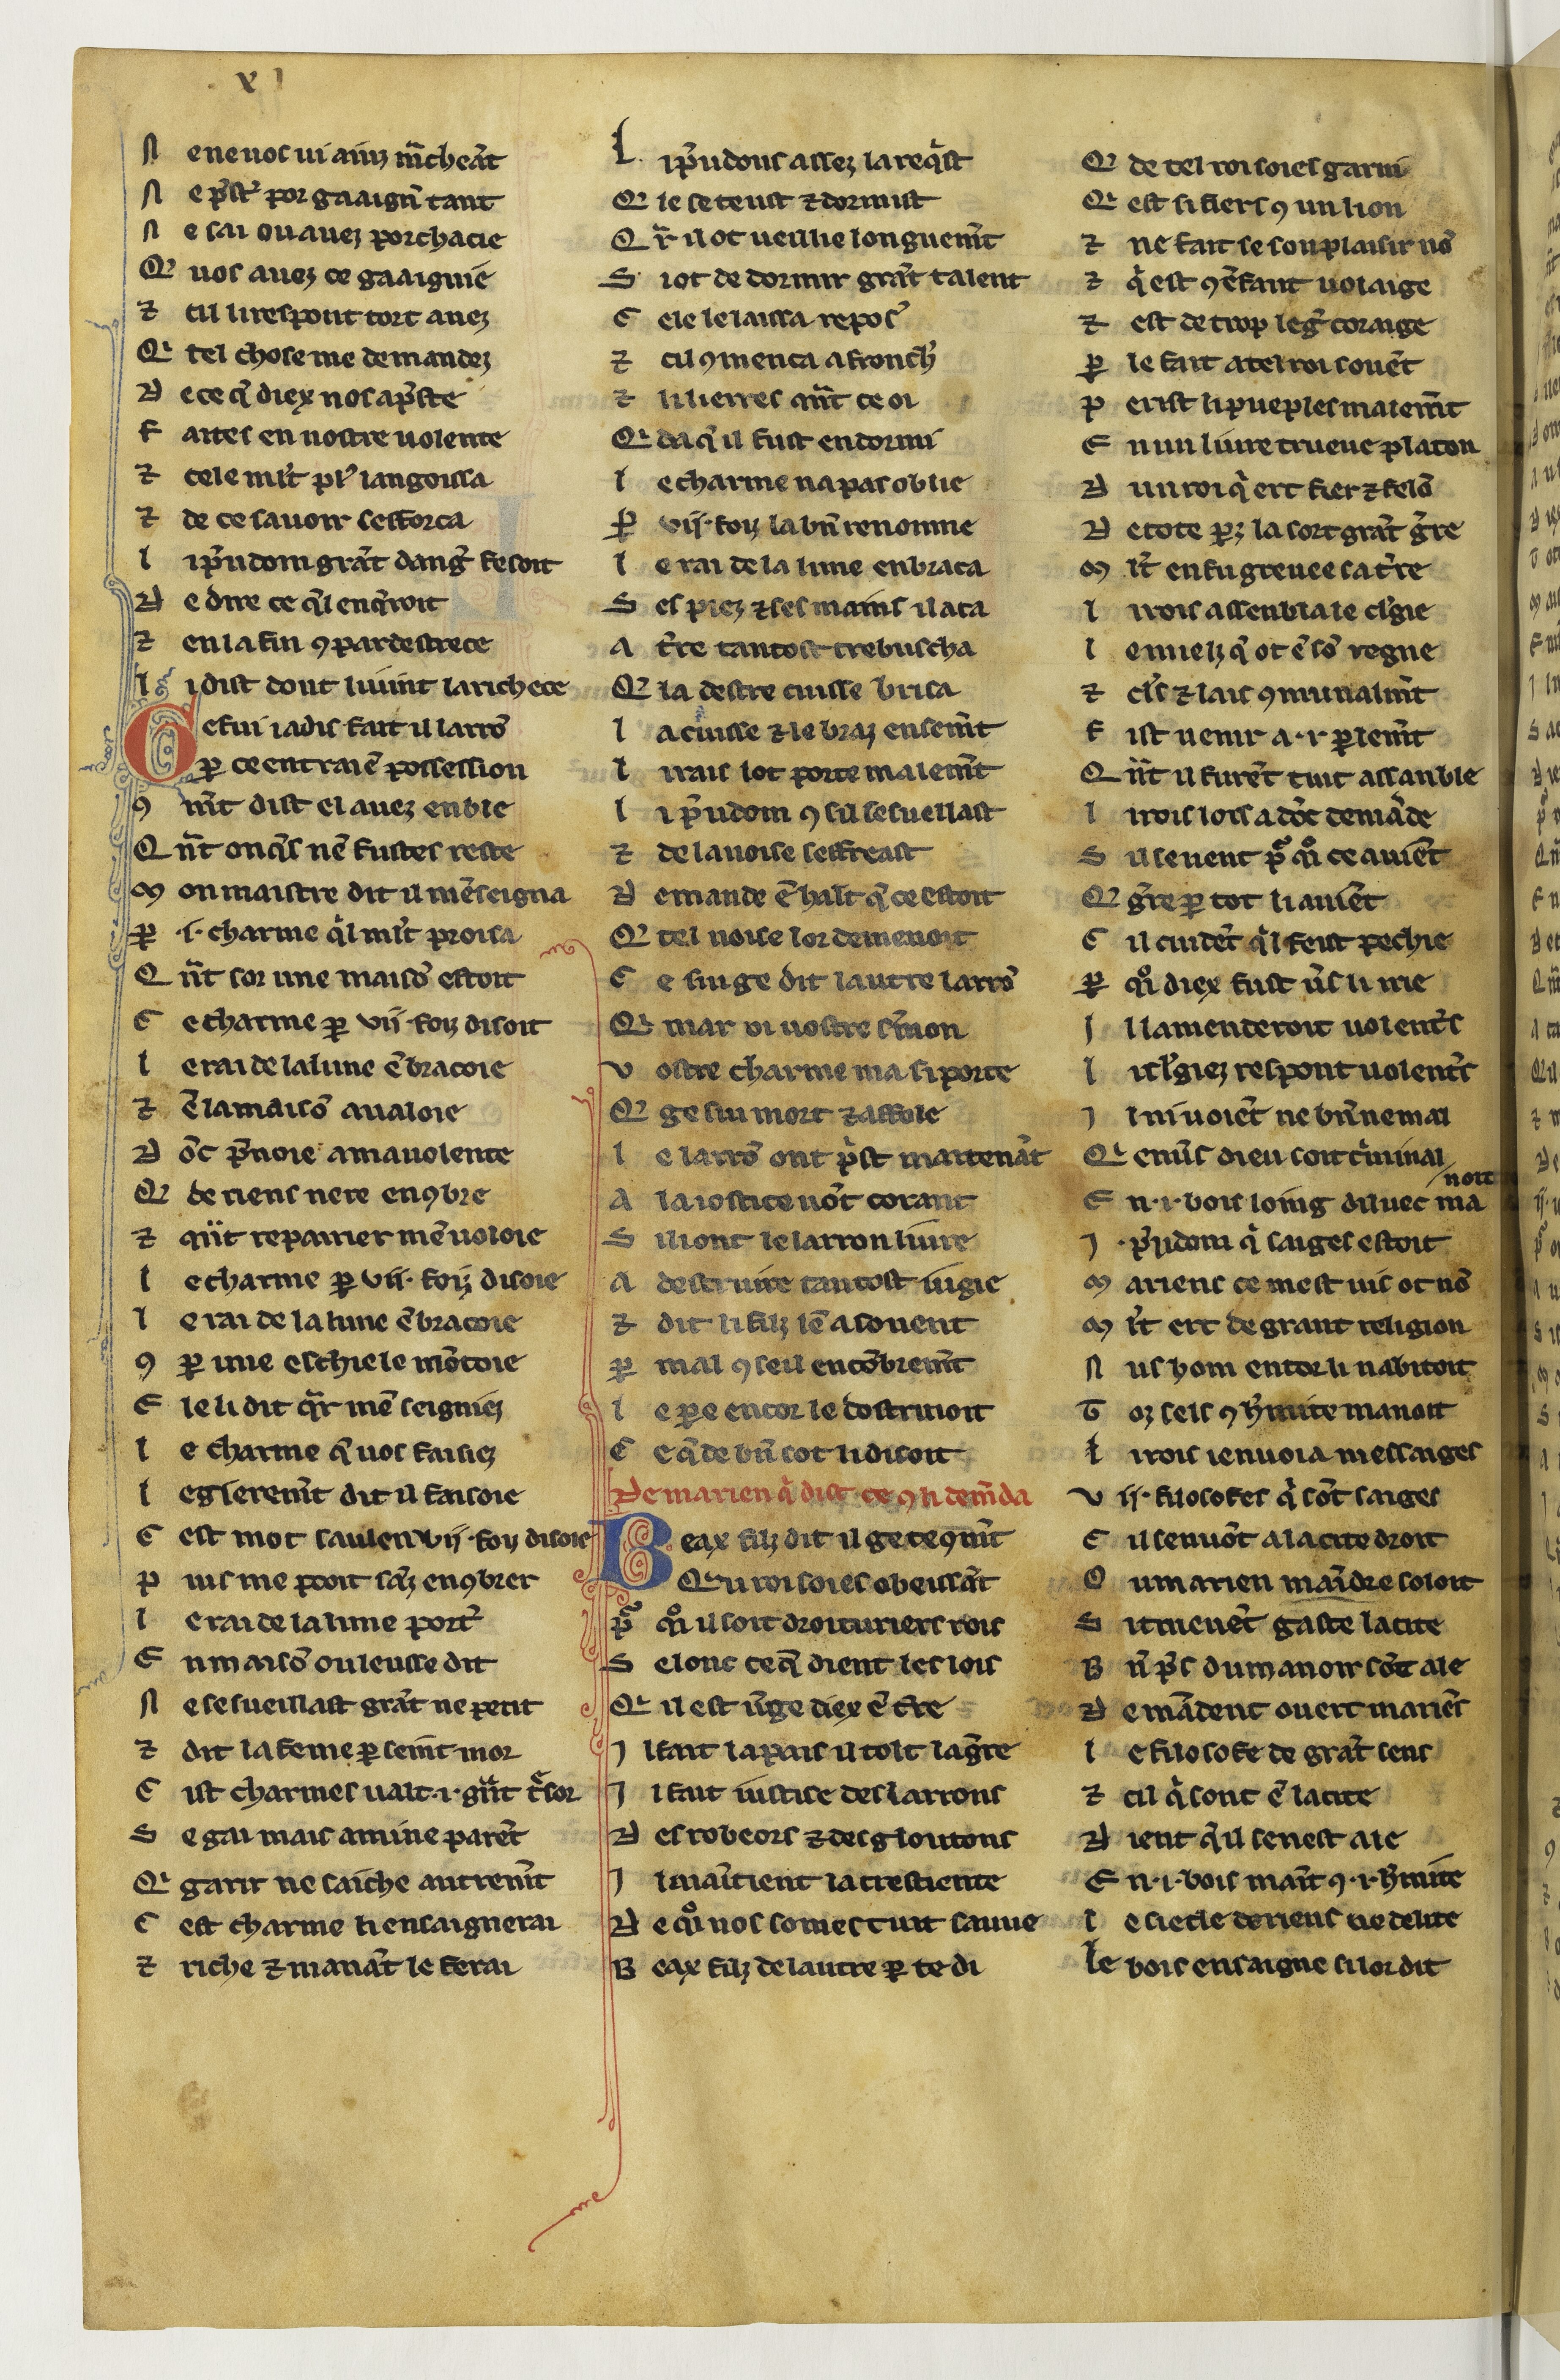 xi
N e ne vos vi ainz m̃cheãt
N e p̃st' por gaaign̄ tant
N e sai ou auez porchacie
Q̃ uos auez ce gaaignie
⁊ cil li respont tort auez
Q̃ tel chose me demandez
D e ce q̃ diex nos a p̃ste
F aites en nostre uolente
⁊ cele mlt' pl' langoissa
⁊ de ce sauoir sefforca
l i p̃udom grãt dang' fesoit
D e dire ce q̃l enq̃roit
⁊ en la fin ꝯ par destrece
l i dist dont li uint la richece
G e fui iadis fait il larrõ
ꝑ ce entrai ẽ possession
ꝯ m̃t dist el auez enble
Q n̄t onq̃s nẽ fustes reste
M on maistre dit il mẽseigna
ꝑ .i. charme q̃l mlt' proisa
Q n̄t sor une maisõ estoit
C e charme ꝑ vii. foiz disoit
l e rai de la lune ẽbracoie
⁊ ẽ la maisõ aualoie
D õc p̃noie a ma uolente
Q̃ de riens nere enꝯbre
⁊ qñt repairier mẽ uoloie
l e charme ꝑ vii. foiz disoie
l e rai de la lune ẽbracoie
ꝯ ꝑ une eschiele mõtoie
E le li dit q̃r mẽ seigniez
l e charme q̃ uos faisiez
l egieremt̃ dit il faisoie
C est mot saulem vii. foiz disoie
P uis me ꝑtoit sãz enꝯbrer
l e rai de la lune port'
E n maisõ ou leusse dit
N e sesueillast grãt ne petit
⁊ dit la feme ꝑ seint mor
C ist charmes ualt .i. g̃nt t̃sor
S e gai mais ami ne parẽt
Q̃ garir ne saiche autremt̃
C est charme li ensaignerai
⁊ riche ⁊ manãt le ferai
L i p̃udons assez la req̃st
Q̃ le se teust ⁊ dormist
Q̃r il ot ueillie longuemt̃
S i ot de dormir grãt talent
C ele le laissa repos'
⁊ cil ꝯmenca a fronch'
⁊ li lierres qn̄t ce oi
Q̃ da q̃ il fust endormi
l e charme na pas oblie
ꝑ vii. foiz la bñ renomme
l e rai de la lune enbraca
S es piez ⁊ ses mains il aca
A t're tantost trebuscha
Q̃ la destre cuisse brisa
l a cuisse ⁊ le braz ensemt̃
l i rais lot porte malemt̃
l i p̃udom ꝯ sil sesuellast
⁊ de la noise seffreast
D emande ẽ halt q̃ ce estoit
Q̃ tel noise lor demenoit
C e sui ge dit lautre larrõ
Q̃ mar oi uostre s'mon
V ostre charme ma si porte
Q̃ ge sui mort ⁊ affole
l e larrõ ont p̃st maitenãt
A la iostice uõt corant
S i li ont le larron liure
A destruire tantost iugie
⁊ dit li filz iẽ a souent
ꝑ mal ꝯseil encõbremt̃
l e pere encor le dostrinoit
C e q̃ de bñ sot li disoit
De marien q̃ dist ce ꝯ li dem̃da
B eax filz dit il ge te ꝯm̃t
Q̃ u roi soies obeissãt
p̃ q̃ il soit droituriers rois
S elonc ce q̃ dient les lois
Q̃ il est ũge diex ẽ t're
I l fait la pais il tolt la g̃re
I l fait iustice des larrons
D es robeors ⁊ des gloutons
I l maĩtient la crestiente
D e q̃ nos somes tuit sauue
B eax filz de lautre ꝑ te di
Q̃ de tel roi soies garni
Q̃ est si fiers ꝯ un lion
⁊ ne fait se son plaisir nõ
⁊ q̃ est ꝯ ẽfant uolaige
⁊ est de trop leg' coraige
ꝑ le fait a tel roi souẽt
P erist li pueples malemt̃
E n un liure trueue platon
D un roi q̃ ert fier ⁊ felõ
D e tote ꝑz la sort grãt g̃re
M lt' en fu greuee sa t're
l i rois assenbla le cl'gie
l e mielz q̃ ot ẽ sõ regne
⁊ cl's ⁊ lais ꝯmunalmt̃
F ist uenir a .i. ꝑlemt̃
Q n̄t il furẽt tuit assanble
l i rois lors a dõc demãde
S il seuent p̃ q̃ ce auiẽt
Q̃ g̃re ꝑ tot li auiẽt
C il cuidẽt q̃l feist pechie
ꝑ q̃ diex fust ũs li irie
I l lamenderoit uolent's
l i cl'giez respont uolent's
I l ni uoiẽt ne bñ ne mal
Q̃ enũs dieu soit c̃minal
E n .i. bois loing diluec ma/noit
I .p̃udom q̃ saiges estoit
M ariens ce mest uis ot nõ
M lt' ert de grant religion
N us hom entor li nabitoit
T oz sels ꝯ h'mite manoit
l i rois i enuoia messaiges
V ii. filosofes q̃ sõt saiges
C il senuõt a la cite droit
O u marien maĩdre soloit
S i truuẽt gaste la cite
B ñ p's du manoir sõt ale
D emãdent ou ert mariẽs
l e filosofe de grãt sens
⁊ cil q̃ sont ẽ la cite
D ient q̃ il senest ale
E n .i. bois maĩt ꝯ .i. h'mite
l e siecle de riens ne delite
le bois ensaigne si lor dit